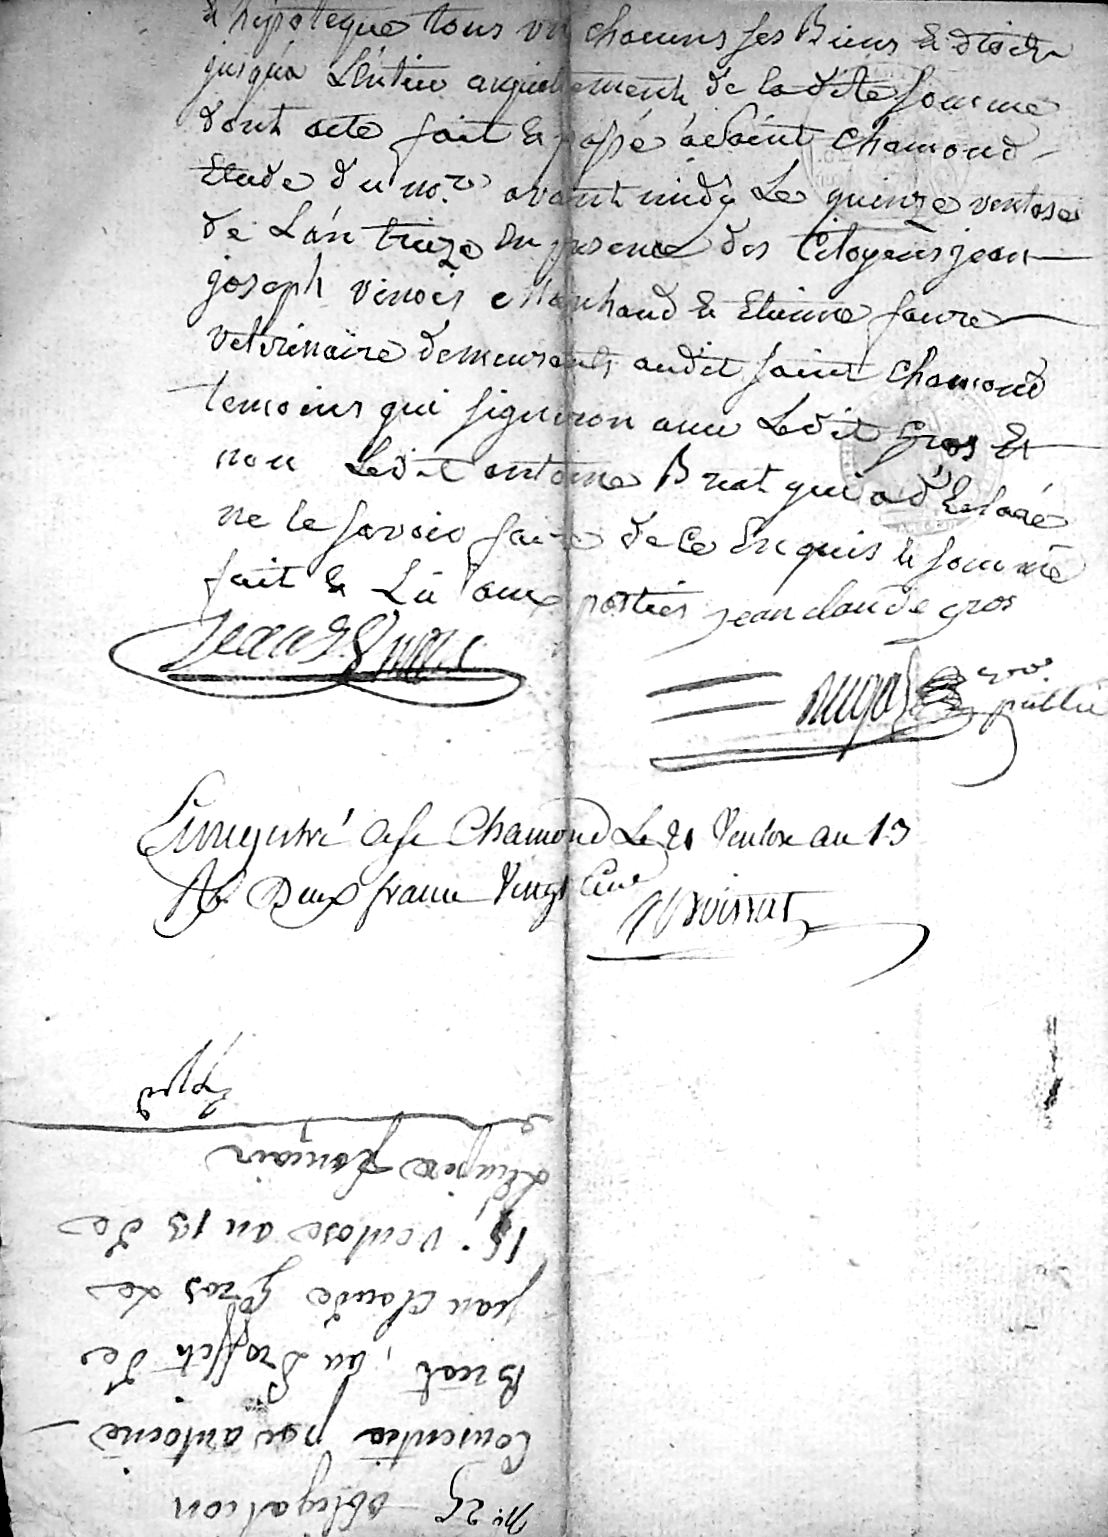 & hypoteque tous un chacuns ses Biens & droits
jusqu'a L'entier acquittement de la dite somme
dont acte fait & passé a Saint Chamond
Etude du no.re avant midy Le quinze ventose
de L'an treize En presence des Citoyens jean
joseph vinois Marchand & Etienne faure
veterinaire demeurants audit saint Chamond
temoins qui signeron avec Ledit Gros Et
non Ledit antoine Briat qui a déclaré
ne le savoir faire de Ce Enquis & sommé
fait & Lû aux parties jean claude gros
no.re
public
Enregistré a St Chamond Le 21 Ventose an 13
R. Deux francs Vingt Cinq
Boissat
N.o 25 obligation
Consentie par antoine
Briat, au proffit de
jean Claude Gros du
15 ventose an 13 de
L'empire français
Exp.d